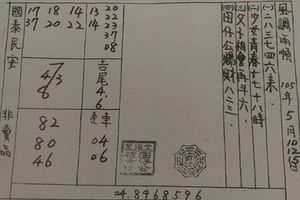 風調雨順
105年5月10 12 15
(一)二八三七四六來.
(二)少女青春十七十八時
(三)父子相會再年六.
(四)田仔公賜財八二三.
17 18 14 13 20
37 20 22 14 22
23
37
08
國泰民安
4
73
8
吉尾
4.
6
82
80
46
連車
04
06
非賣品
04.8968596